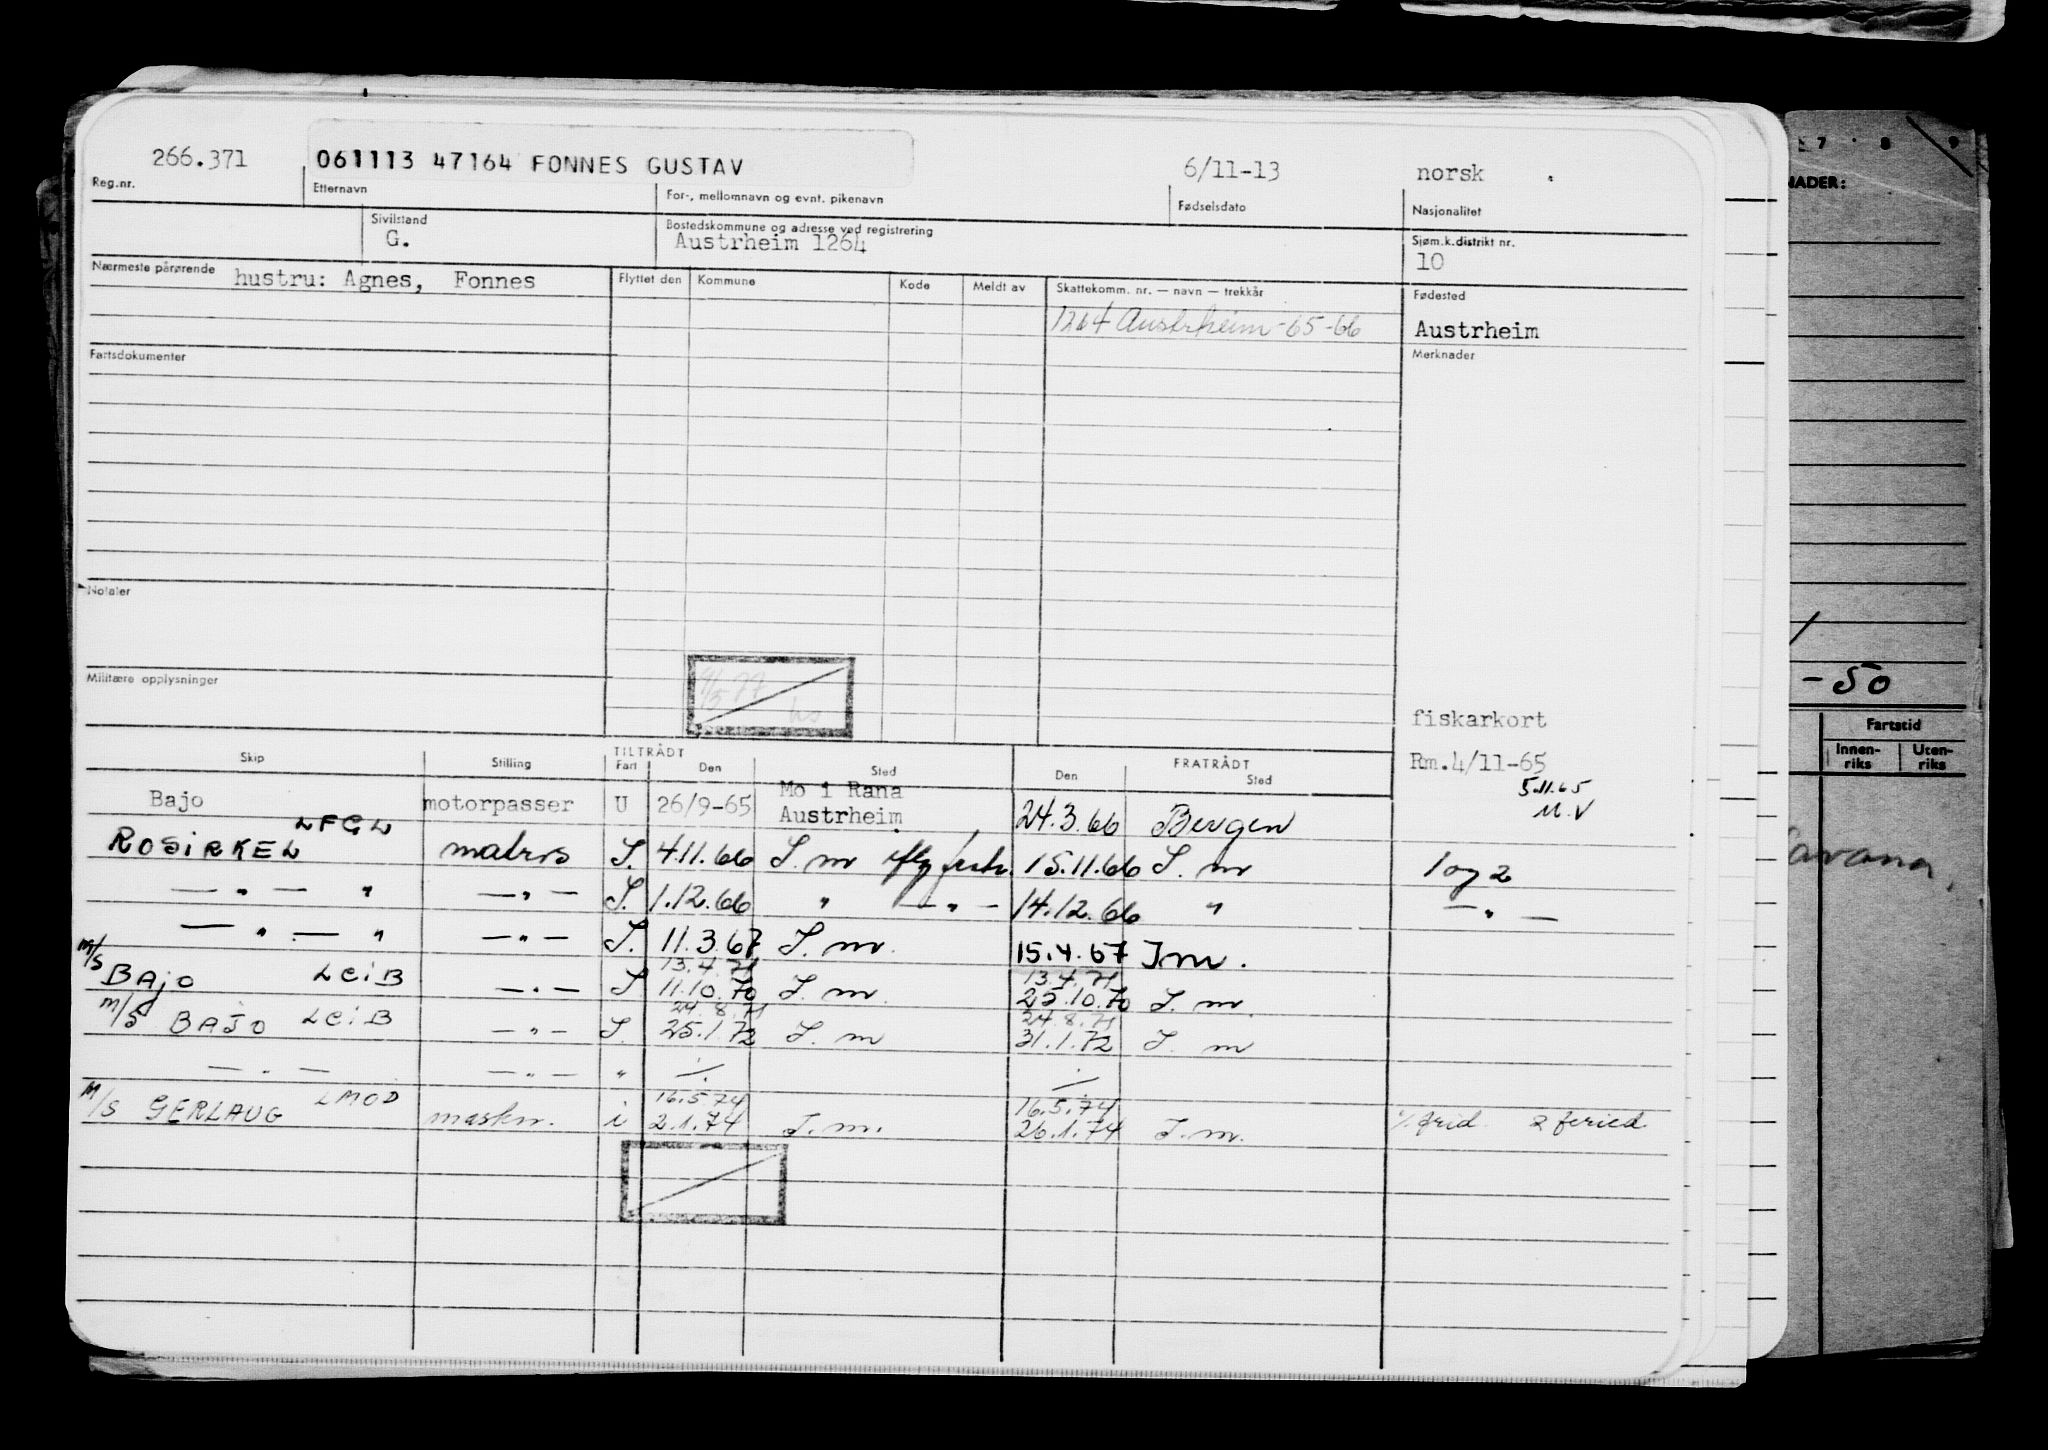 266.371 061113 47164 FONNES GUSTAV 6/11-13 norsk
Reg.nr. Etternavn For-, mellomnavn og evnt. pikenavn Fødselsdato Nasjonalitet
Sivilstand Bostedskommune og adresse ved registrering Sjøm.k.distrikt nr.
G. Austrheim 1264 10
Nærmeste pårørende hustru: Agnes, Fonnes Flyttet den Kommune Kode Meldt av Skattekomm. nr. — navn — trekkår Fødested
1264 Austrheim-65-66 Austrheim
Fartsdokumenter Merknader
Notater
Militære opplysninger
fiskarkort
Skip Stilling TILTRÅDT Fart Den Sted FRATRÅDT Den Sted Rm.4/11-65
5.11.65
M.V
Bajo motorpasser U 26/9-65 Mo i Rana Austrheim 24.3.66 Bergen
ROSIRKEL LFGL matros S. 4.11.66 S. m 15.11.66 S. m 1 og 2
— " — " — " — S. 1.12.66 " — " — 14.12.66 " — " —
— " — " — " — S. 11.3.67 S. m. 15.4.67 I m.
13.4.71 13.4.71
M/S BAJO LCIB — " — S 11.10.70 S. m. 25.10.70 S. m.
24.8.71 24.8.71
M/S BAJO LCIB — " — S. 25.1.72 S. m 31.1.72 S. m
— " — — " — "
16.5.74 16.5.74
M/S GERLAUG LMOD maskn. i 2.1.74 I. m. 26.1.74 I. m.
7 8 9
NADER:
-50
Fartstid
Innen-riks Uten-riks